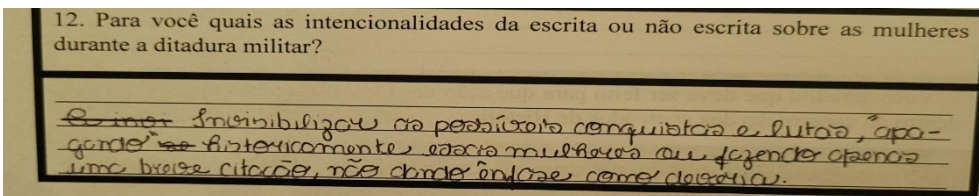 12. Para você quais as intencionalidades da escrita ou não escrita sobre as mulheres
durante a ditadura militar?
Invisibilizar as possíveis conquistas e lutas, "apa-
gando" historicamente, essas mulheres ou fazendo apenas
uma breve citação, não dando ênfase como deveria.